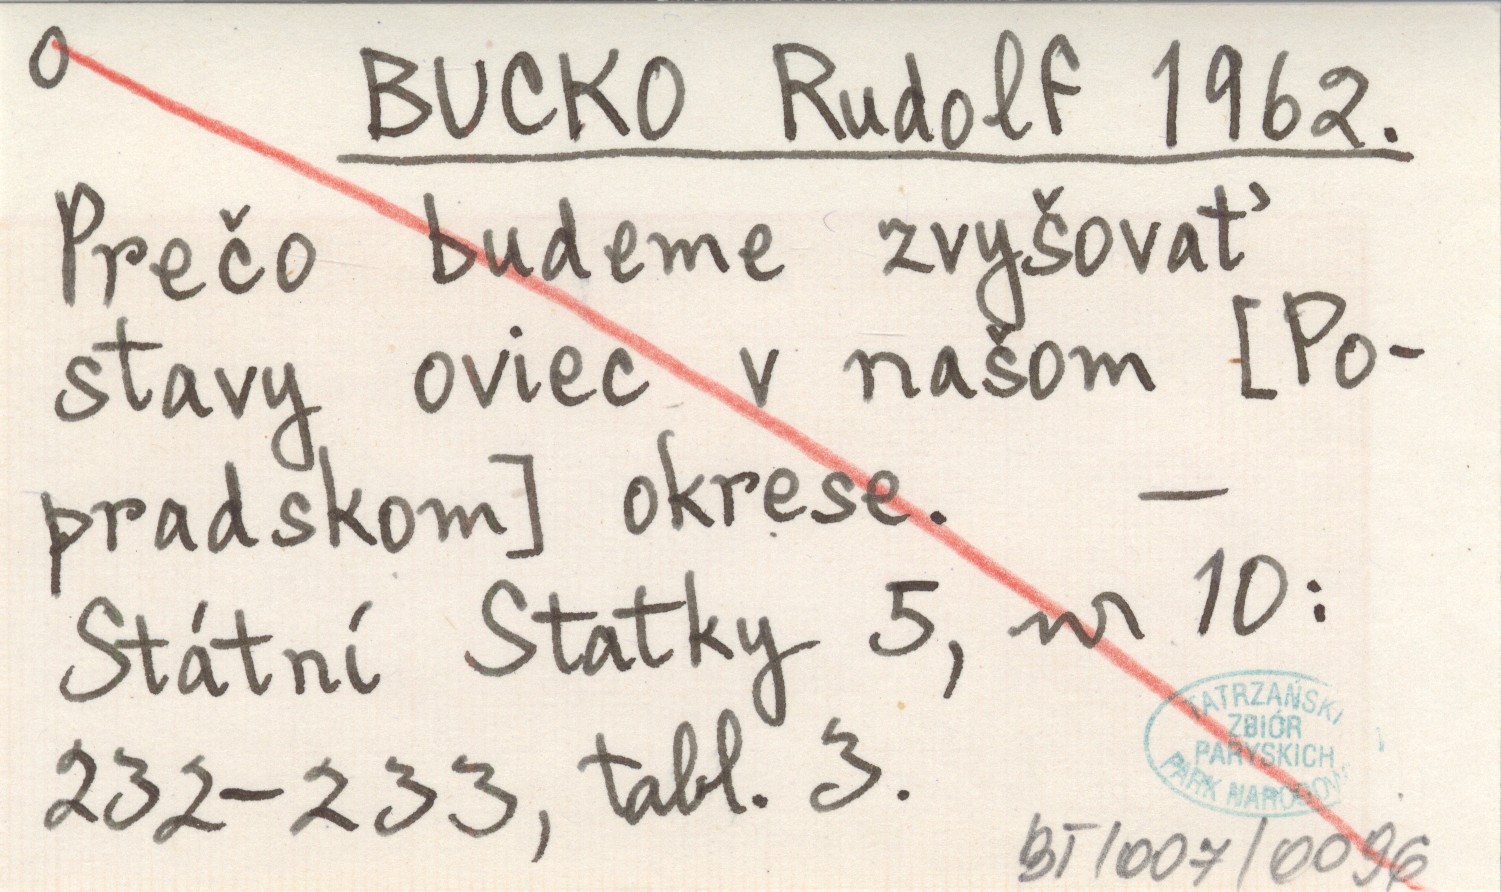 O BUCKO Rudolf 1962.
Prečo budeme zvyšovať
stavy oviec v našom [Po-
pradskom] okrese. —
Státní Statky 5, nr 10:
232-233, tabl. 3.
TATRZAŃSKI
ZBIÓR
PARYSKICH
PARK NARODOWY
BT/007/0096